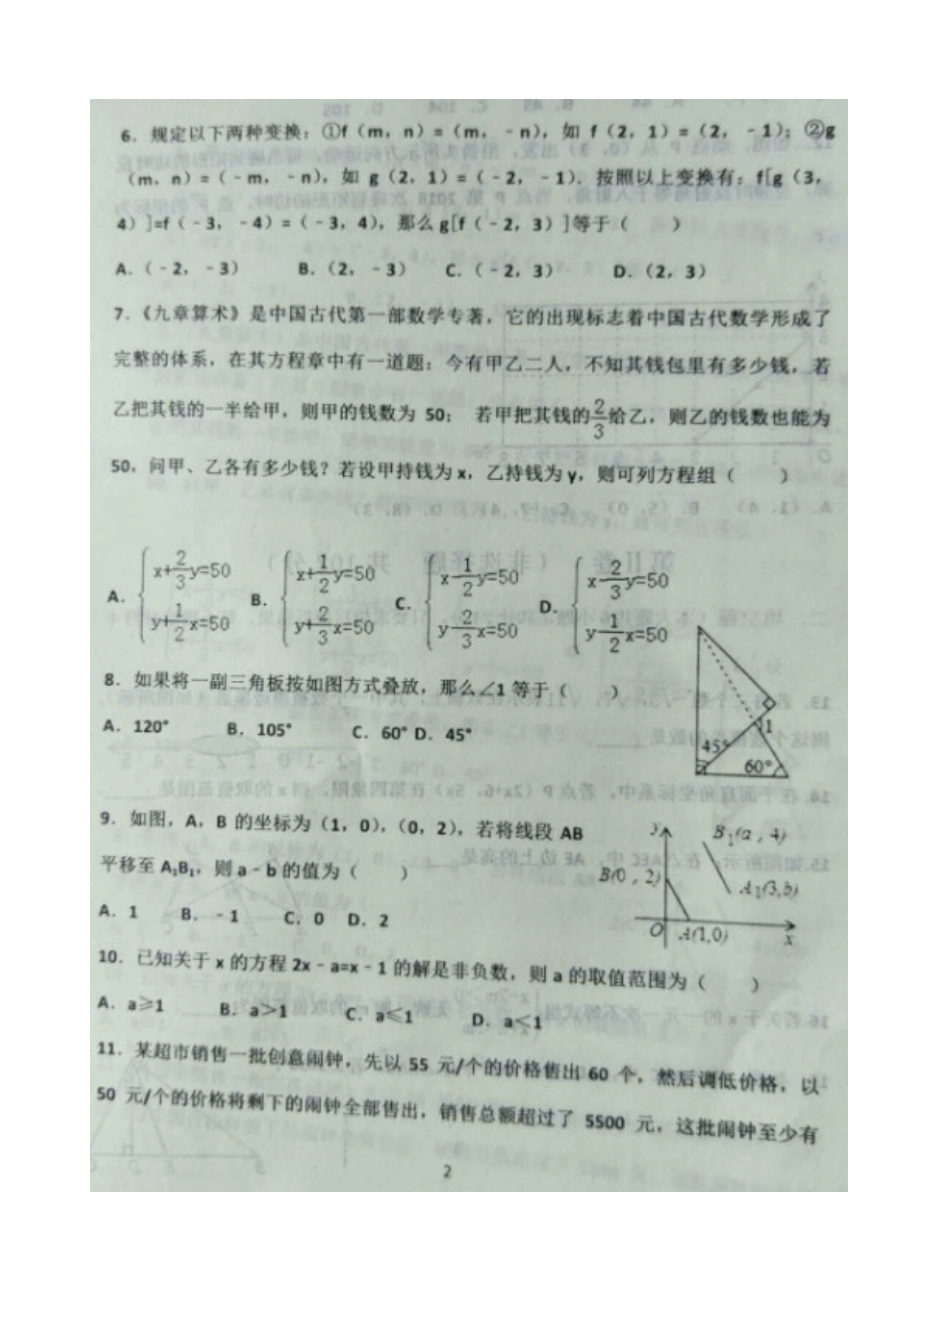 6．规定以下两种变换：①f（m，n）=（m，﹣n），如 f（2，1）=（2，﹣1）；②g
（m，n）=（﹣m，﹣n），如 g（2，1）=（﹣2，﹣1），按照以上变换有：f[g（3，
4）]=f（﹣3，﹣4）=（﹣3，4），那么 g[f（﹣2，3）]等于（　　）
A．（﹣2，﹣3） B．（2，﹣3） C．（﹣2，3） D．（2，3）
7．《九章算术》是中国古代第一部数学专著，它的出现标志着中国古代数学形成了
完整的体系，在其方程章中有一道题：今有甲乙二人，不知其钱包里有多少钱，若
乙把其钱的一半给甲，则甲的钱数为 50； 若甲把其钱的2/3给乙，则乙的钱数也能为
50，问甲、乙各有多少钱？若设甲持钱为 x，乙持钱为 y，则可列方程组（　　）
A．{x+2/3y=50 y+1/2x=50 B．{x+1/2y=50 y+2/3x=50 C．{x-1/2y=50 y-2/3x=50 D．{x-2/3y=50 y-1/2x=50
8．如果将一副三角板按如图方式叠放，那么∠1 等于（　　）
A．120° B．105° C．60° D．45°
1
45°
60°
9．如图，A，B 的坐标为（1，0），（0，2），若将线段 AB
平移至 A₁B₁，则 a﹣b 的值为（　　）
A．1 B．﹣1 C．0 D．2
y
B₁(a，4)
B(0，2)
A₁(3,b)
O
A(1,0)
x
10．已知关于 x 的方程 2x﹣a=x﹣1 的解是非负数，则 a 的取值范围为（　　）
A．a≥1 B．a>1 C．a≤1 D．a<1
11．某超市销售一批创意闹钟，先以 55 元/个的价格售出 60 个，然后调低价格，以
50 元/个的价格将剩下的闹钟全部售出，销售总额超过了 5500 元，这批闹钟至少有
2